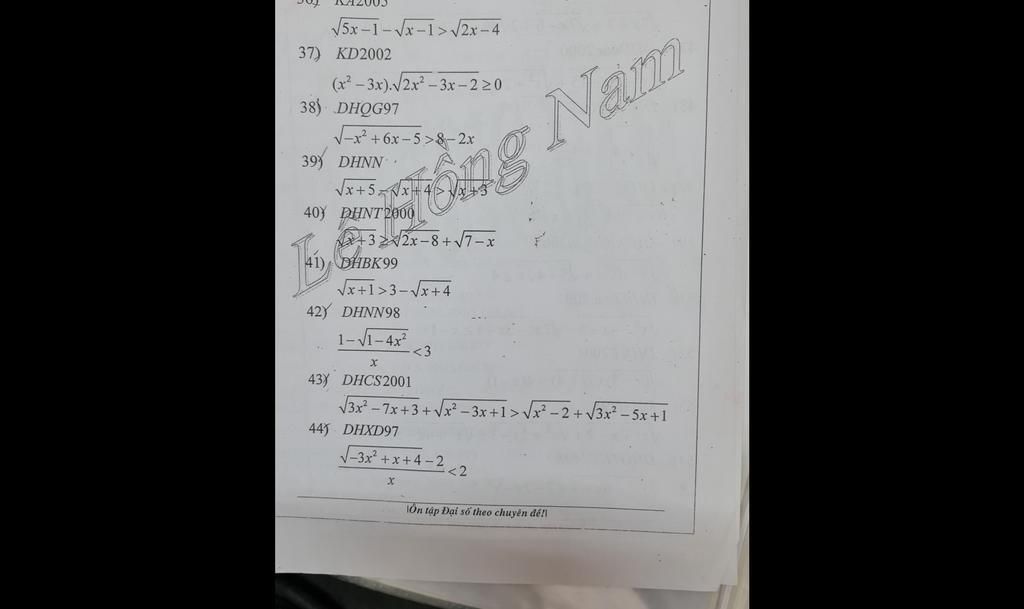 36) KA2005
√(5x−1) − √(x−1) > √(2x−4)
37) KD2002
(x² − 3x).√(2x² − 3x − 2) ≥ 0
38) DHQG97
√(−x² + 6x − 5) > 8 − 2x
39) DHNN
√(x+5) − √(x+4) > √(x+3)
40) DHNT2000
√(x+3) ≥ √(2x−8) + √(7−x)
41) DHBK99
√(x+1) > 3 − √(x+4)
42) DHNN98
(1 − √(1−4x²))/x < 3
43) DHCS2001
√(3x² − 7x + 3) + √(x² − 3x + 1) > √(x² − 2) + √(3x² − 5x + 1)
44) DHXD97
(√(−3x² + x + 4) − 2)/x < 2
Ôn tập Đại số theo chuyên đề!
Lê Hồng Nam